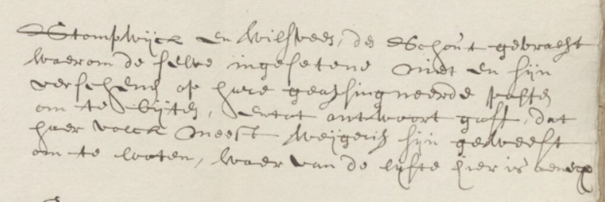 Stompwijck en Wilsveen, de Schout gebracht
waerom de selve ingesetene niet en sijn
verscheenen op hare geassingneerde posten
om te bijten, en tot antwoort gaff, dat
haer volck meest weijgerich sijn geweest
om te looten, waer van de lijste hier is annex